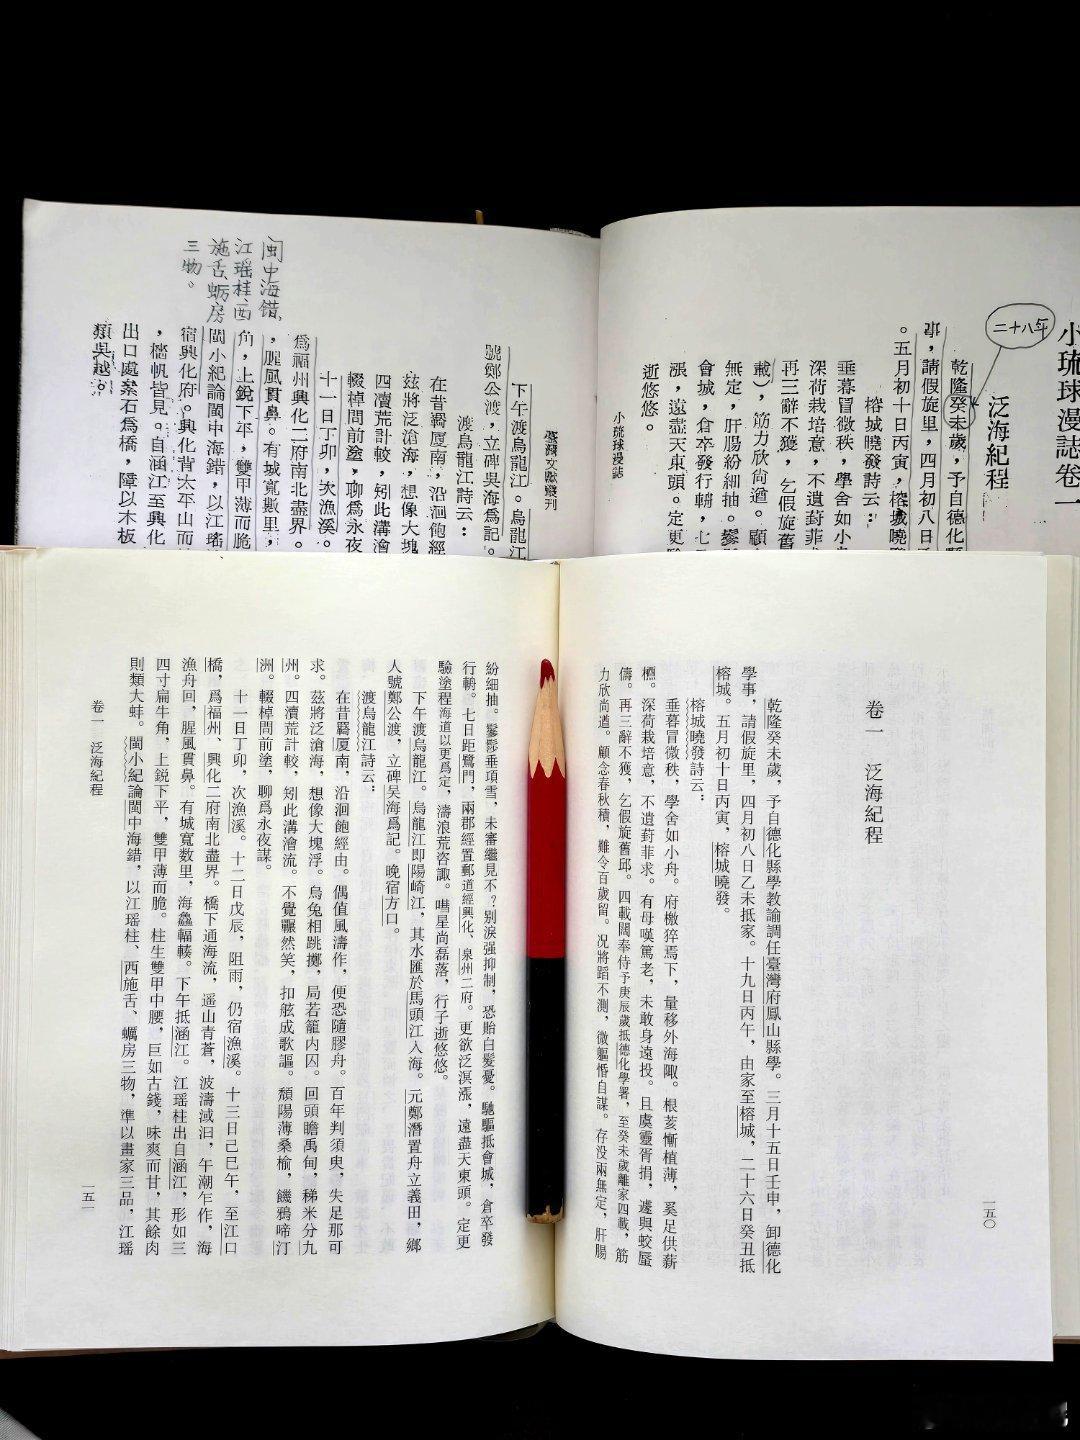 小琉球漫誌卷一
泛海紀程
二十八年
乾隆癸未歲，予自德化縣
事，請假旋里，四月初八日
。五月初十日丙寅，榕城曉
榕城曉發詩云：
垂暮冒微秩，學舍如小
深荷栽培意，不遺葑菲
再三辭不獲，乞假旋舊
載），筋力欣尚遒。顧
無定，肝腸紛細抽。鬖
會城，倉卒發行輈，七
漲，遠盡天東頭。定更
逝悠悠。
小琉球漫誌
臺灣文獻叢刊
下午渡烏龍江。烏龍江
號鄭公渡，立碑吳海爲記。
渡烏龍江詩云：
在昔羇厦南，沿洄飽經
玆將泛滄海，想像大塊
四瀆荒計較，矧此溝澮
輟棹問前塗，聊爲永夜
十一日丁卯，次漁溪。
爲福州興化二府南北盡界。
，腥風貫鼻。有城寬數里，
角，上銳下平，雙甲薄而脆
閩小紀論閩中海錯，以江瑤
宿興化府。興化背太平山而
，檣帆皆見。自涵江至興化
出口處案石爲橋，障以木板
類吳越。
闽中海错、
江瑶柱、西
施舌、蛎房
三物。
卷一　泛海紀程
乾隆癸未歲，予自德化縣學教諭調任臺灣府鳳山縣學。三月十五日壬申，卸德化
學事，請假旋里，四月初八日乙未抵家。十九日丙午，由家至榕城，二十六日癸丑抵
榕城。五月初十日丙寅，榕城曉發。
榕城曉發詩云：
垂暮冒微秩，學舍如小舟。府檄猝焉下，量移外海陬。根荄慚植薄，奚足供薪
槱。深荷栽培意，不遺葑菲求。有母嘆篤老，未敢身遠投。且虞靈胥捐，遽與蛟蜃
儔。再三辭不獲，乞假旋舊邱。四載闕奉侍予庚辰歲抵德化學署，至癸未歲離家四載，筋
力欣尚遒。顧念春秋積，難令百歲留。況將蹈不測，微軀惛自謀。存没兩無定，肝腸
一五〇
紛細抽。鬖鬖垂項雪，未審繼見不？別淚强抑制，恐貽白髮憂。馳驅抵會城，倉卒發
行輈。七日距鷺門，兩郡經置郵道經興化、泉州二府。更欲泛溟漲，遠盡天東頭。定更
驗塗程海道以更爲定，濤浪荒咨諏。嘒星尚磊落，行子逝悠悠。
下午渡烏龍江。烏龍江即陽崎江，其水匯於馬頭江入海。元鄭潛置舟立義田，鄉
人號鄭公渡，立碑吳海爲記。晚宿方口。
渡烏龍江詩云：
在昔羇厦南，沿洄飽經由。偶值風濤作，便恐隨膠舟。百年判須臾，失足那可
求。茲將泛滄海，想像大塊浮。烏兔相跳擲，局若籠内囚。回頭瞻禹甸，稊米分九
州。四瀆荒計較，矧此溝澮流。不覺囅然笑，扣舷成歌謳。頹陽薄桑榆，饑鴉啼汀
洲。輟棹問前塗，聊爲永夜謀。
十一日丁卯，次漁溪。十二日戊辰，阻雨，仍宿漁溪。十三日己巳午，至江口
橋，爲福州、興化二府南北盡界。橋下通海流，遥山青蒼，波濤淢汩，午潮乍作，海
漁舟回，腥風貫鼻。有城寬數里，海艤輻輳。下午抵涵江。江瑶柱出自涵江，形如三
四寸扁牛角，上銳下平，雙甲薄而脆。柱生雙甲中腰，巨如古錢，味爽而甘，其餘肉
則類大蚌。閩小紀論閩中海錯，以江瑶柱、西施舌、蠣房三物，準以畫家三品，江瑶
卷一　泛海紀程
一五一